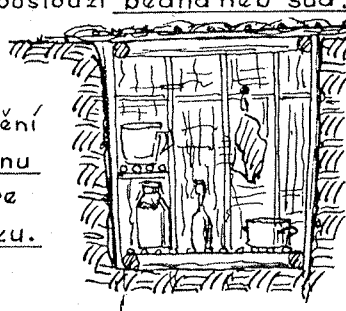 poslouží bedna neb sud,
ění
nu
zu.